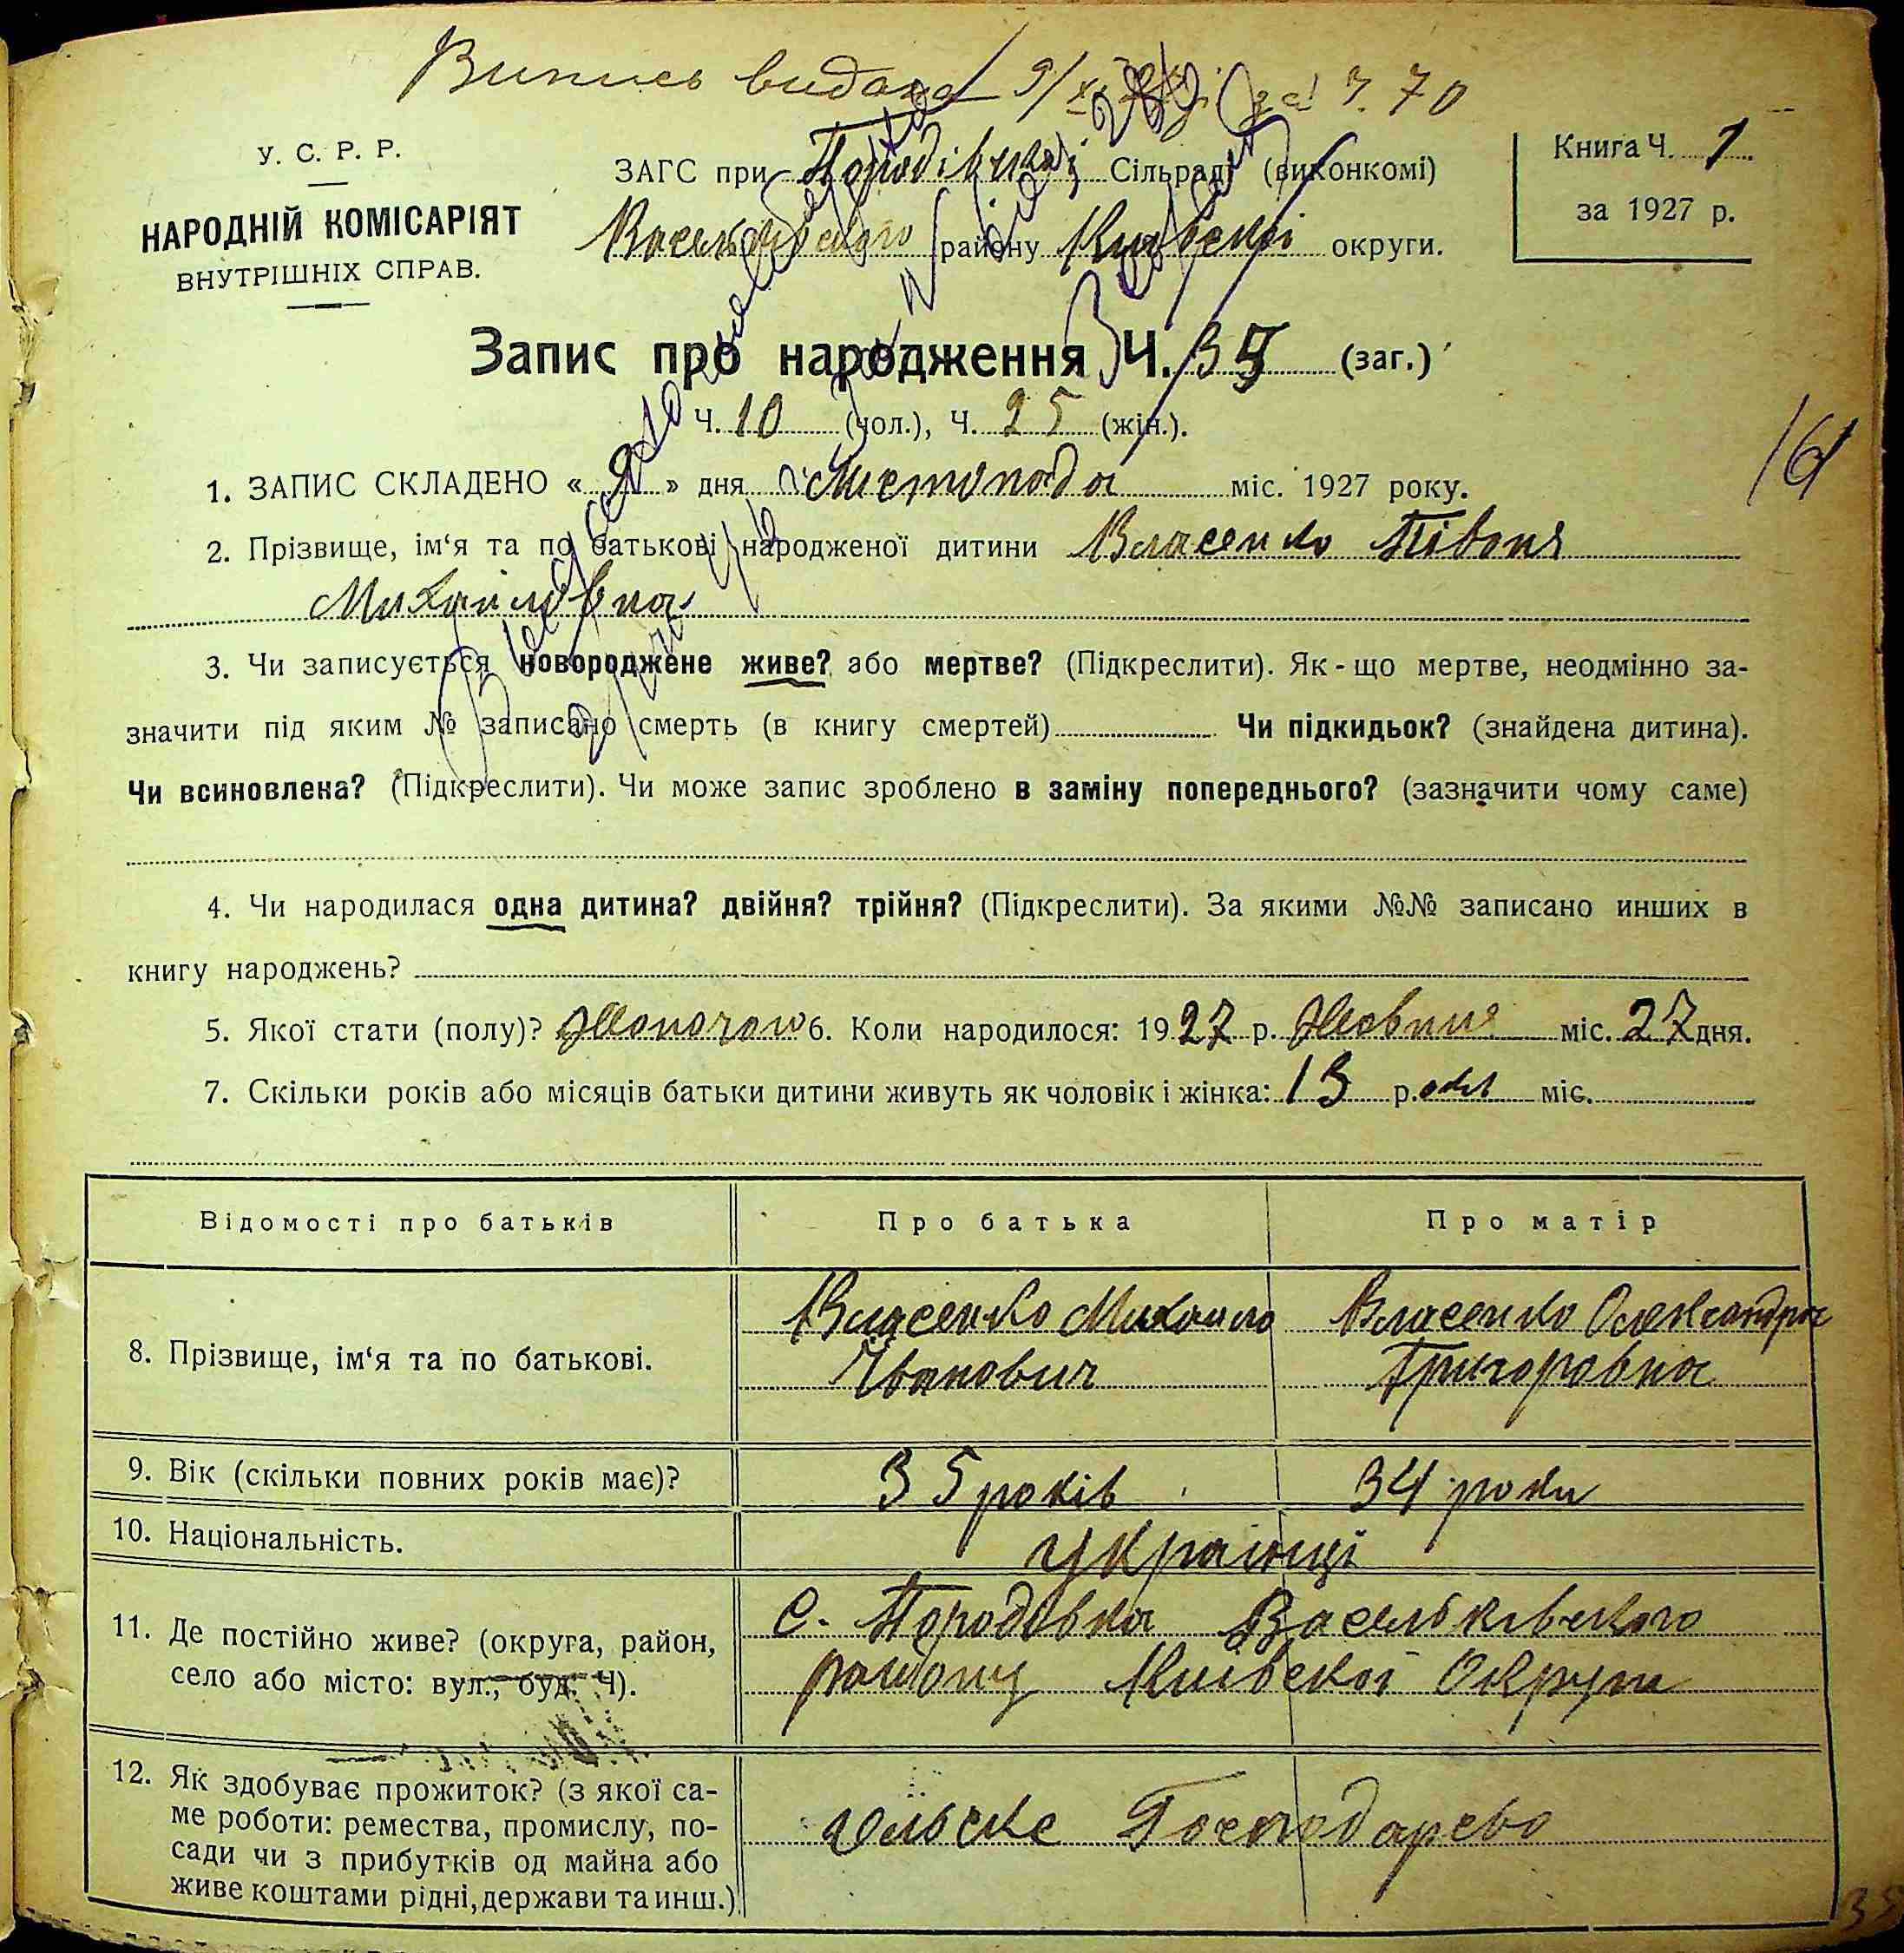 Випись видана 9/XI 70
У. С. Р. Р.
НАРОДНІЙ КОМІСАРІЯТ
ВНУТРІШНІХ СПРАВ.
ЗАГС при Сільраді (виконкомі)
району Київської округи.
Книга Ч. 1
за 1927 р.
Запис про народження Ч. 35 (заг.)
Ч. 10 (чол.), Ч. 25 (жін.).
161
1. ЗАПИС СКЛАДЕНО « 9 » дня Листопада міс. 1927 року.
2. Прізвище, ім‘я та по батькові народженої дитини Власенко Півоня
Михайловна
3. Чи записується новороджене живе? або мертве? (Підкреслити). Як-що мертве, неодмінно за-
значити під яким № записано смерть (в книгу смертей) Чи підкидьок? (знайдена дитина).
Чи всиновлена? (Підкреслити). Чи може запис зроблено в заміну попереднього? (зазначити чому саме)
4. Чи народилася одна дитина? двійня? трійня? (Підкреслити). За якими №№ записано инших в
книгу народжень?
5. Якої стати (полу)? Жіночого 6. Коли народилося: 1927 р. Жовтня міс. 27 дня.
7. Скільки років або місяців батьки дитини живуть як чоловік і жінка: 13 р. міс.
Відомості про батьків Про батька Про матір
8. Прізвище, ім‘я та по батькові. Власенко Михайло Власенко Олександра
Іванович Григоровна
9. Вік (скільки повних років має)? 35 років 34 роки
10. Національність. українці
11. Де постійно живе? (округа, район, с. Порадовка Васельківського
село або місто: вул., буд. Ч). району Київської Округи
12. Як здобуває прожиток? (з якої са-
ме роботи: ремества, промислу, по- сільське Господарсво
сади чи з прибутків од майна або
живе коштами рідні, держави та инш.)
35